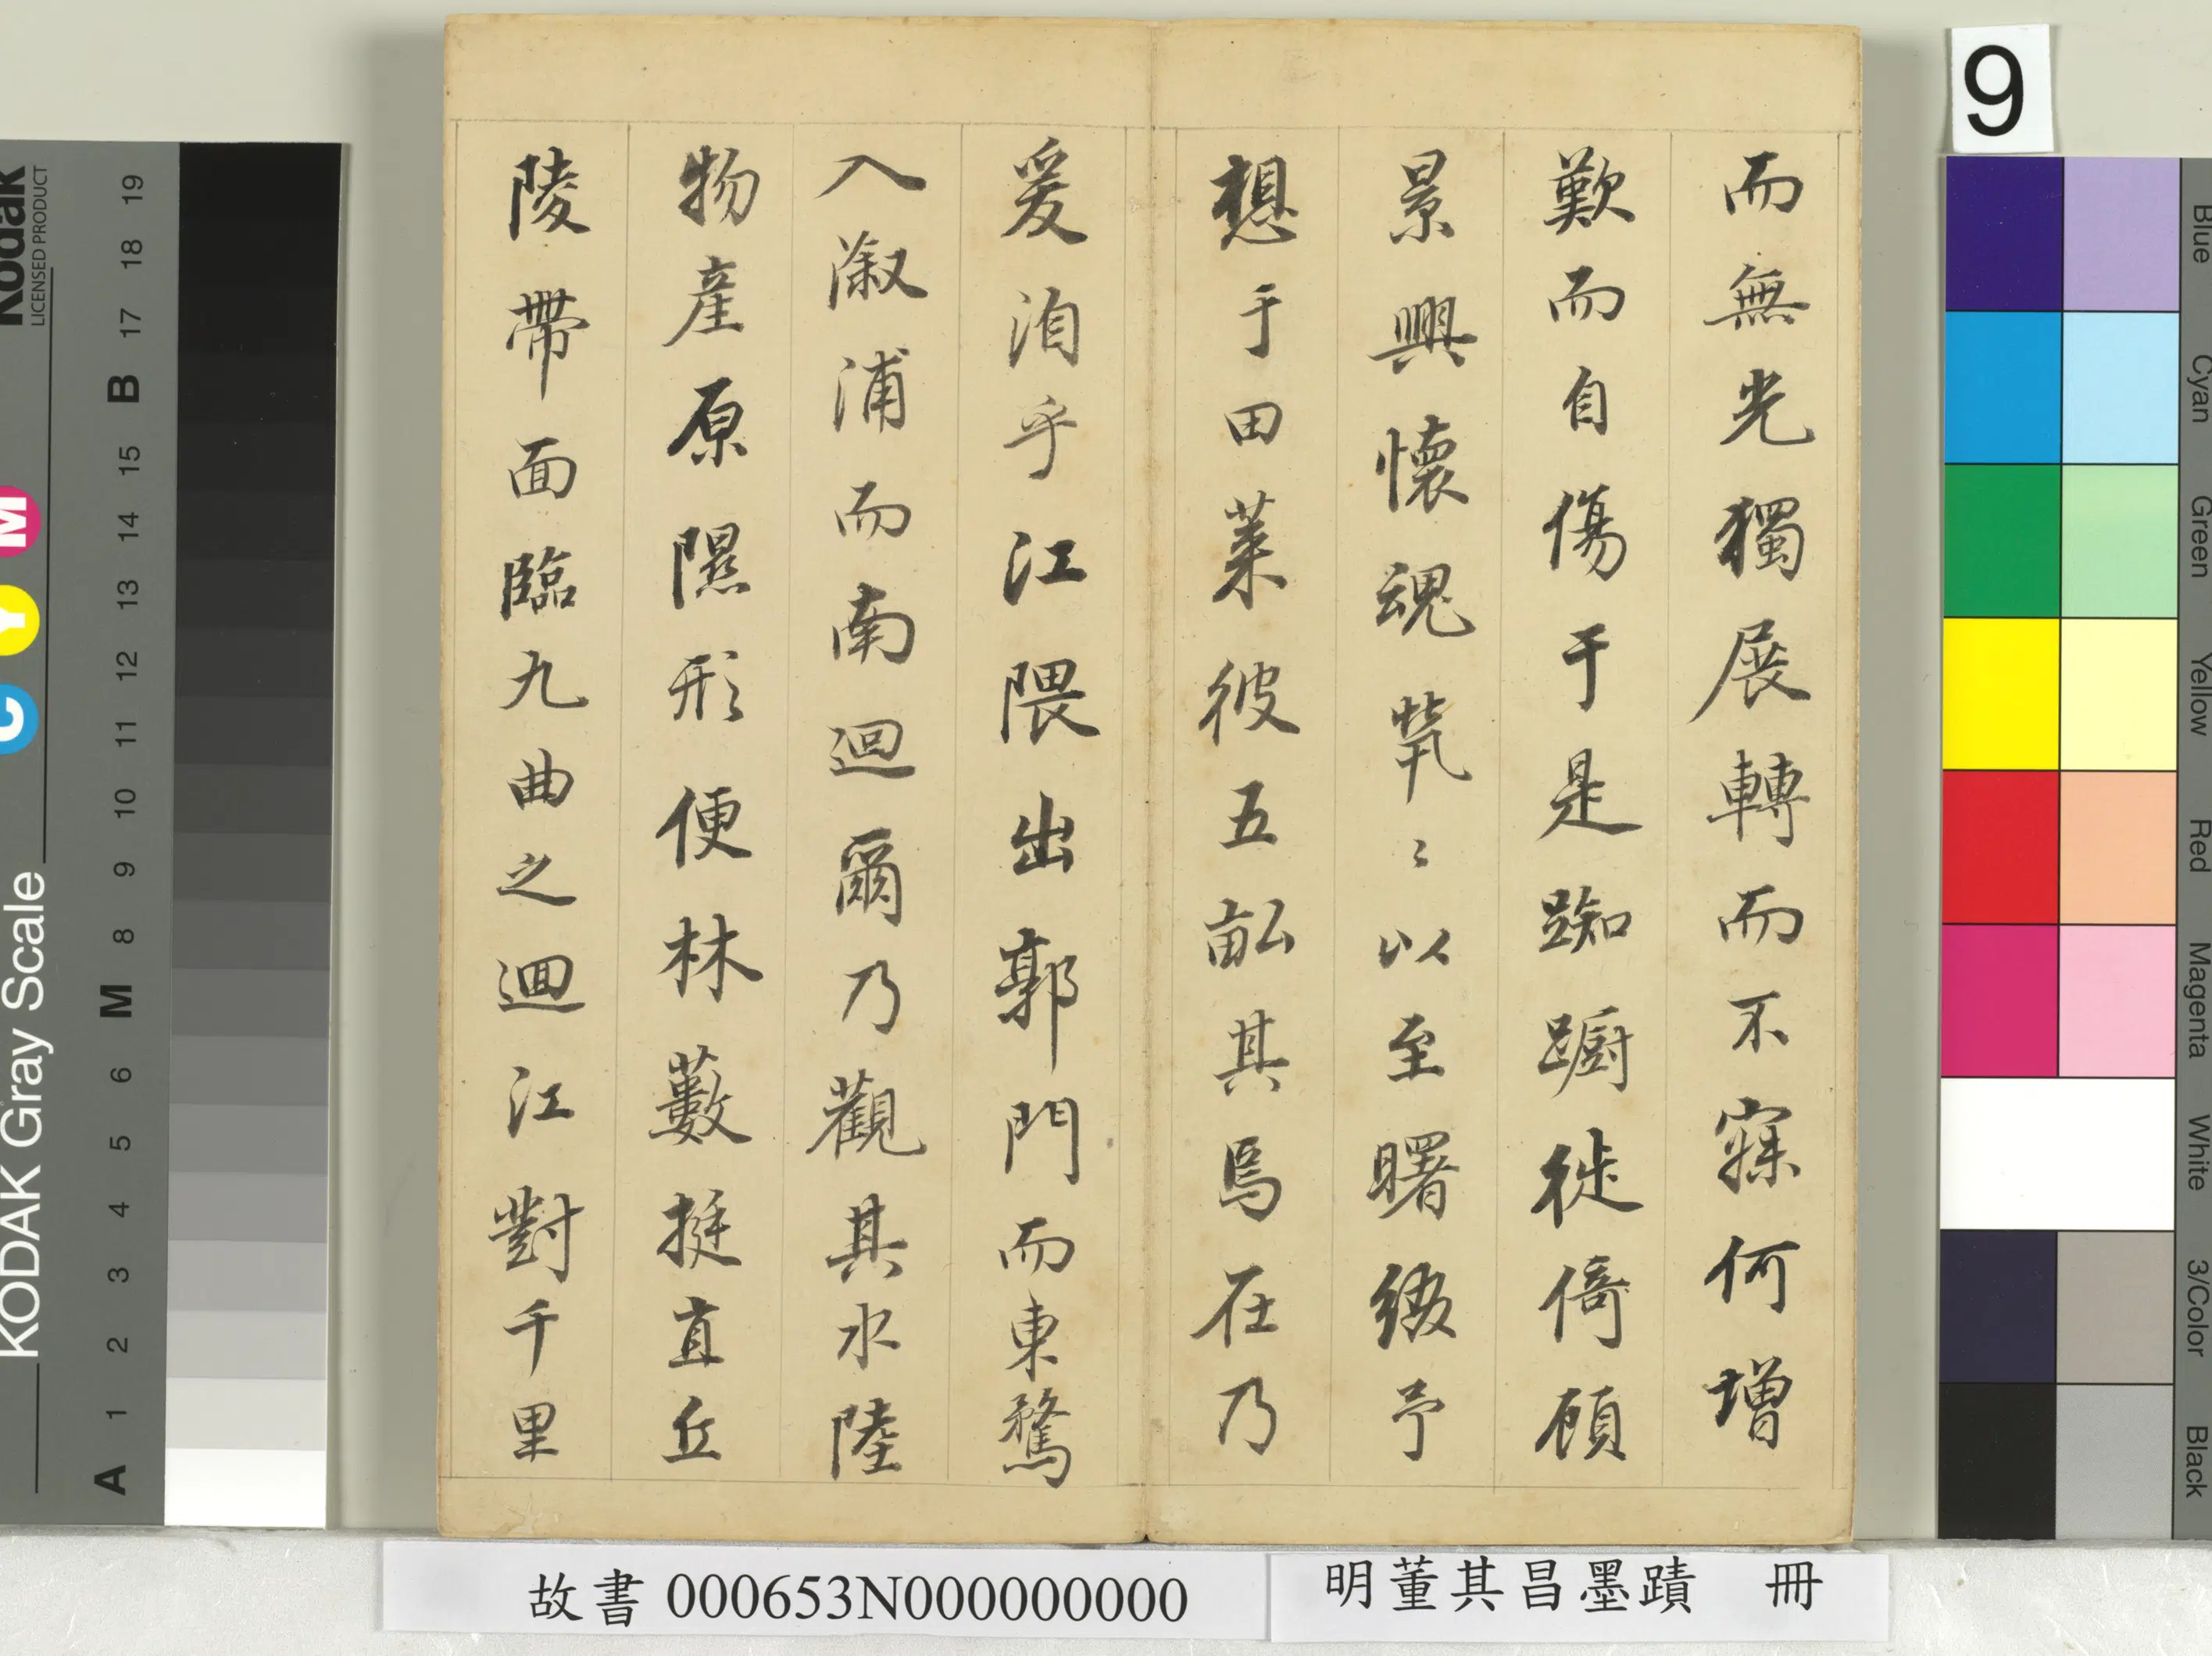 9
而無光獨展轉而不寐何增
歎而自傷于是踟躕徙倚顧
景興懷魂煢〻以至曙緩予
想于田萊彼五畝其焉在乃
爰洎乎江隈出郭門而東騖
入溆浦而南迴爾乃觀其水陸
物產原隰形便林藪挺直丘
陵帶面臨九曲之迴江對千里
故書 000653N000000000
明董其昌墨蹟 冊
Kodak
LICENSED PRODUCT
KODAK Gray Scale
C Y M
A 1 2 3 4 5 6 M 8 9 10 11 12 13 14 15 B 17 18 19
Blue
Cyan
Green
Yellow
Red
Magenta
White
3/Color
Black